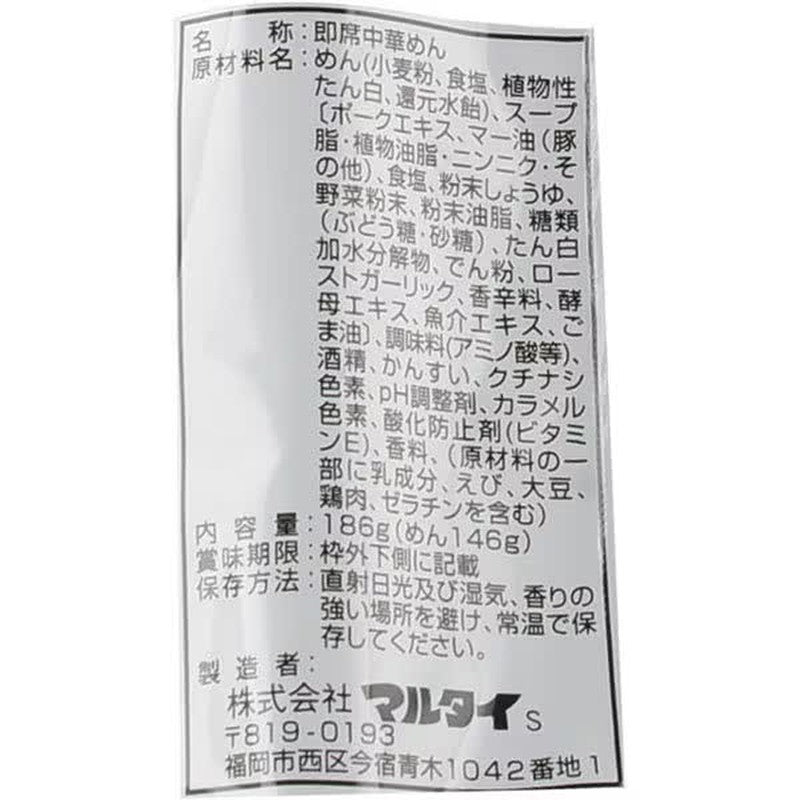 名称：即席中華めん
原材料名：めん(小麦粉、食塩、植物性
たん白、還元水飴)、スープ
〔ポークエキス、マー油(豚
脂・植物油脂・ニンニク・そ
の他)、食塩、粉末しょうゆ、
野菜粉末、粉末油脂、糖類
(ぶどう糖・砂糖)、たん白
加水分解物、でん粉、ロー
ストガーリック、香辛料、酵
母エキス、魚介エキス、ご
ま油〕、調味料(アミノ酸等)、
酒精、かんすい、クチナシ
色素、pH調整剤、カラメル
色素、酸化防止剤(ビタミ
ンE)、香料、(原材料の一
部に乳成分、えび、大豆、
鶏肉、ゼラチンを含む)
内容量：186g(めん146g)
賞味期限：枠外下側に記載
保存方法：直射日光及び湿気、香りの
強い場所を避け、常温で保
存してください。
製造者：
株式会社 マルタイ S
〒819-0193
福岡市西区今宿青木1042番地1